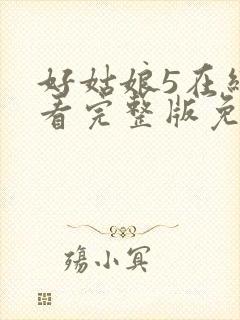 好姑娘5在纟
看完整版免
殇小冥